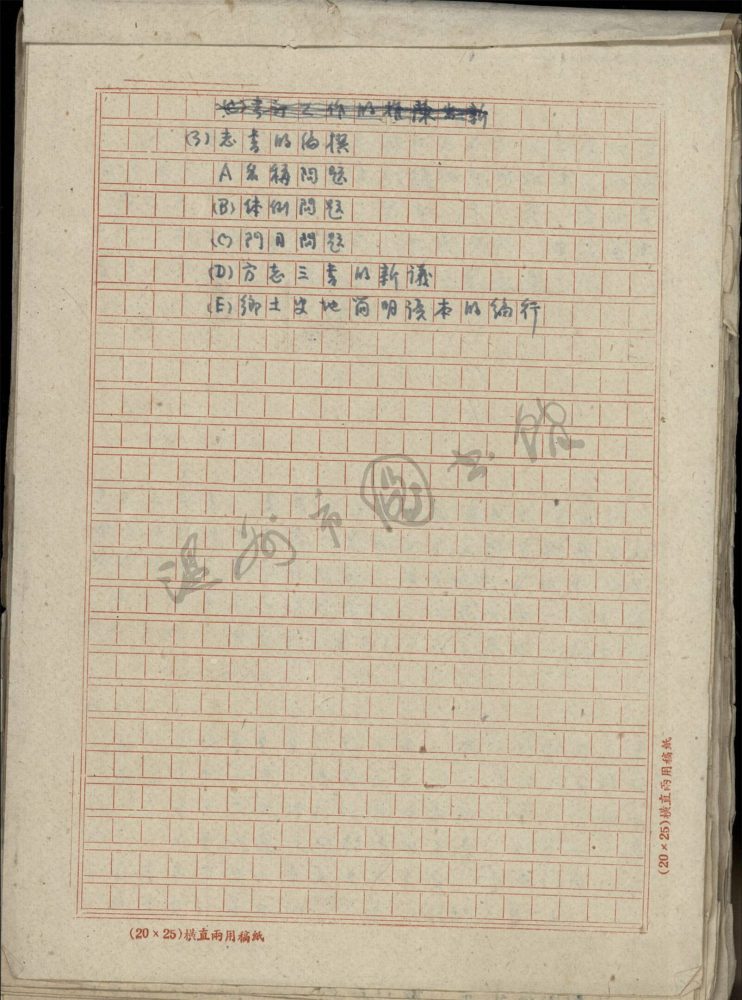 (3)志書的編撰
A 名稱問題
(B)体例問題
(C)門目問題
(D)方志三書的新議
(E)鄉土史地简明读本的编行
温州市圖书馆
(20×25)橫直兩用稿紙
(20×25)橫直兩用稿紙